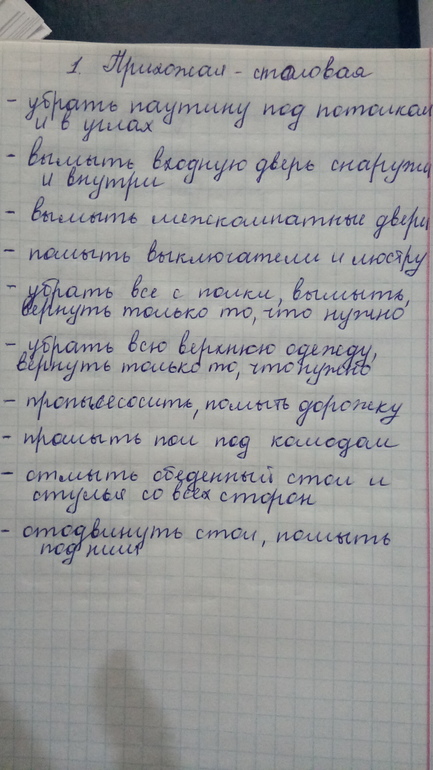 1. Прихожая - столовая
- убрать паутину под потолком
и в углах
- вымыть входную дверь снаружи
и внутри
- вымыть межкомнатные двери
- помыть выключатели и люстру
- убрать все с полки, вымыть,
вернуть только то, что нужно
- убрать всю верхнюю одежду,
вернуть только то, что нужно
- пропылесосить, помыть дорожку
- промыть пол под комодом
- отмыть обеденный стол и
стулья со всех сторон
- отодвинуть стол, помыть
под ним